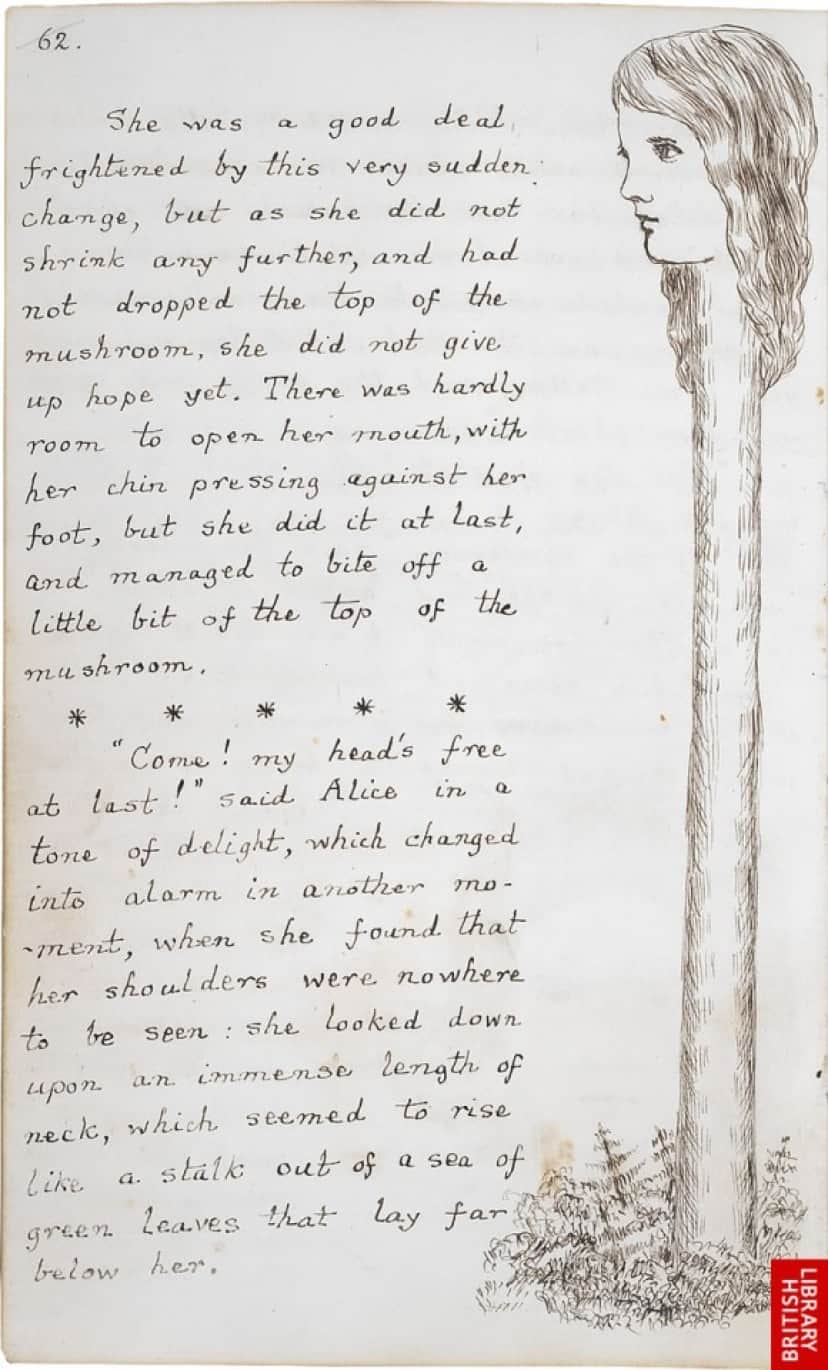 62.
She was a good deal
frightened by this very sudden
change, but as she did not
shrink any further, and had
not dropped the top of the
mushroom, she did not give
up hope yet. There was hardly
room to open her mouth, with
her chin pressing against her
foot, but she did it at last,
and managed to bite off a
little bit of the top of the
mushroom.
* * * * *
"Come! my head's free
at last!" said Alice in a
tone of delight, which changed
into alarm in another mo-
-ment, when she found that
her shoulders were nowhere
to be seen: she looked down
upon an immense length of
neck, which seemed to rise
like a stalk out of a sea of
green leaves that lay far
below her.
BRITISH
LIBRARY